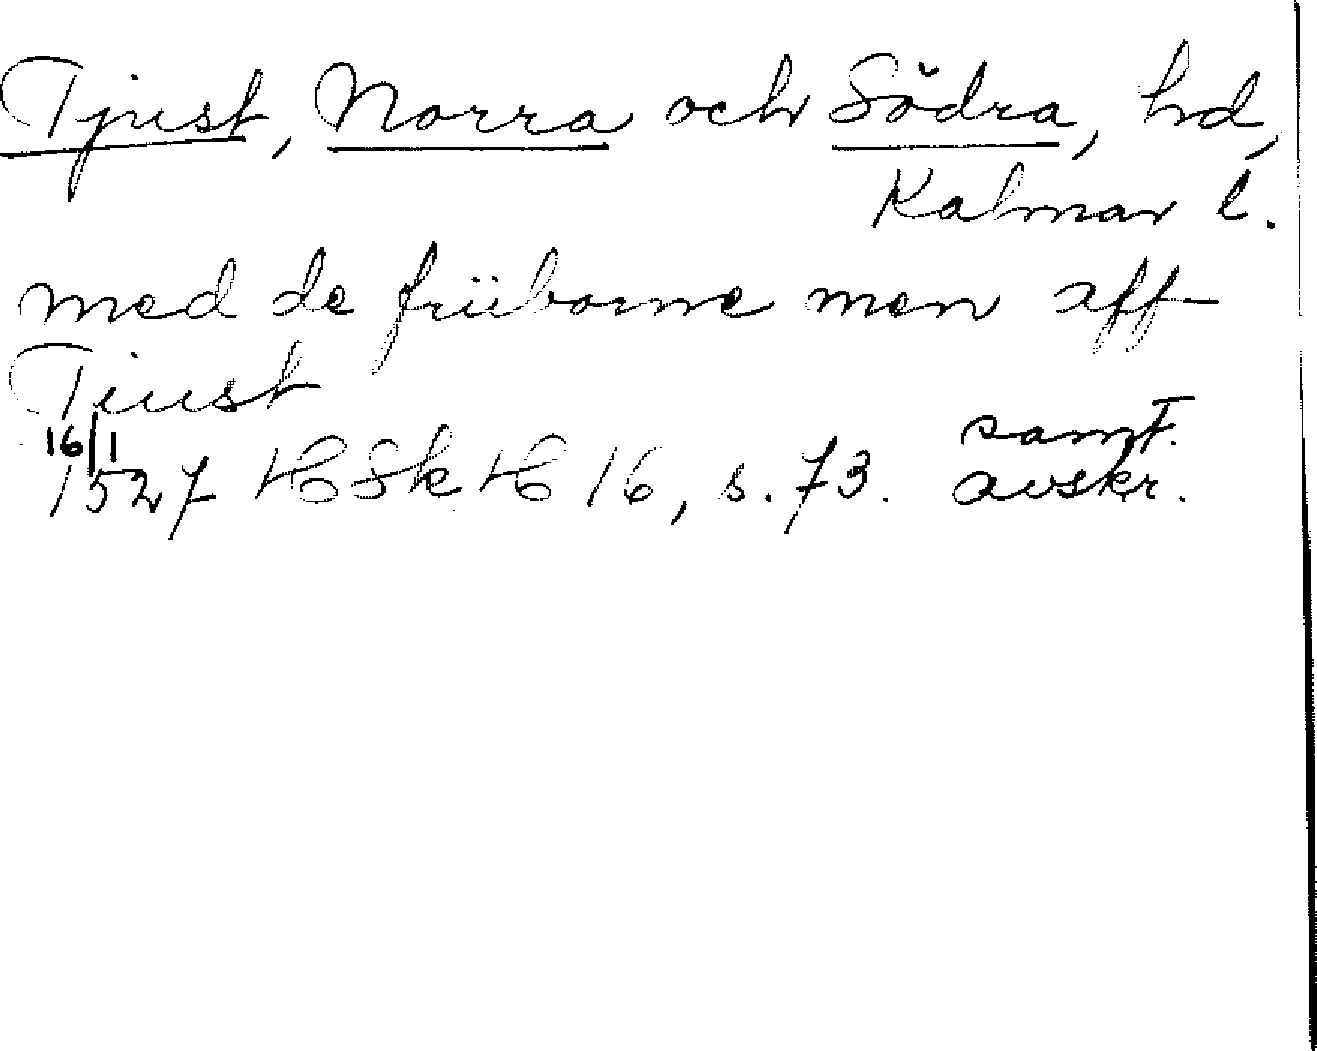 Tjust, Norra och Södra, hd,
Kalmar l.
med de friiborne men aff
Tiust
16/1 samt.
1527 HSkH 16, s. 73. avskr.